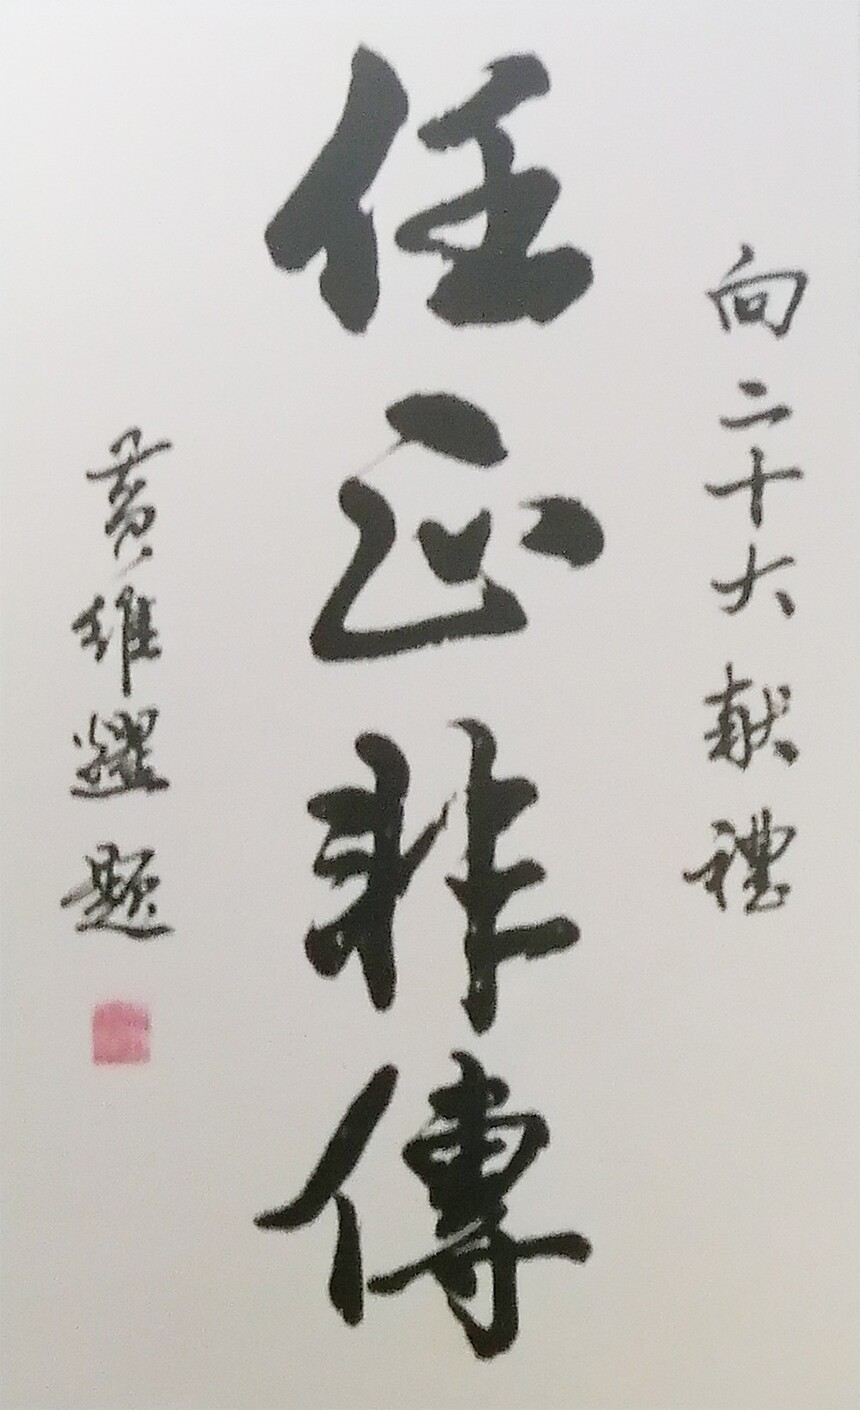 向二十大献禮
任正非傳
黄维耀題